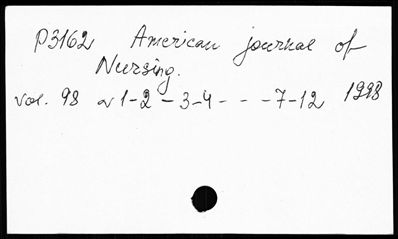 P3162 American journal of
Nursing.
vol. 98 N 1-2 - 3-4 - - - 7-12 1998